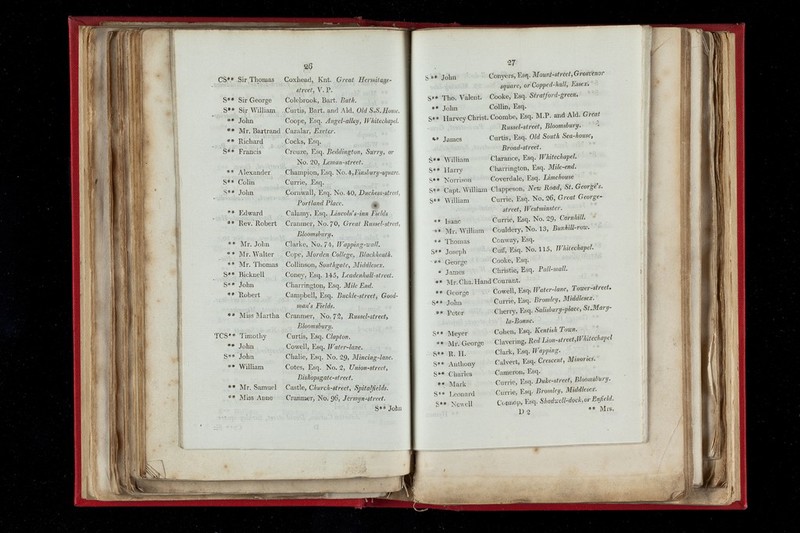 26
CS** Sir Thomas Coxhead, Knt. Great Hermitage-
street, V. P.
S** Sir George Colebrook, Bart. Bath.
S** Sir William Curtis, Bart. and Ald. Old S.S. House.
** John Coope, Esq. Angel-alley, Whitechapel.
** Mr. Bartrand Cazalar, Exeter.
** Richard Cocks, Esq.
S** Francis Creuze, Esq. Beddington, Surry, or
No. 20, Leman-street.
** Alexander Champion, Esq. No. 4, Finsbury-square.
S** Colin Currie, Esq.
S** John Cornwall, Esq. No. 40, Duchess-street,
Portland Place.
** Edward Calamy, Esq. Lincoln's-inn Fields
** Rev. Robert Cranmer, No. 70, Great Russel-street,
Bloomsbury.
** Mr. John Clarke, No. 74, Wapping-wall.
** Mr. Walter Cope, Morden College, Blackheath.
** Mr. Thomas Collinson, Southgate, Middlesex.
S** Bicknell Coney, Esq. 145, Leadenhall-street.
S** John Charrington, Esq. Mile End.
** Robert Campbell, Esq. Buckle-street, Good-
man's Fields.
** Miss Martha Cranmer, No. 72, Russel-street,
Bloomsbury.
TCS** Timothy Curtis, Esq. Clapton.
** John Cowell, Esq. Water-lane.
S** John Chalie, Esq. No. 29, Mincing-lane.
** William Cotes, Esq. No. 2, Union-street,
Bishopsgate-street.
** Mr. Samuel Castle, Church-street, Spitalfields.
** Miss Anne Cranmer, No. 96, Jermyn-street.
S** John
27
S** John Conyers, Esq. Mount-street, Grosvenor
square, or Copped-hall, Essex.
S** Tho. Valent. Cooke, Esq. Stratford-green.
** John Collin, Esq.
S** Harvey Christ. Coombe, Esq. M.P. and Ald. Great
Russel-street, Bloomsbury.
** James Curtis, Esq. Old South Sea-house,
Broad-street.
S** William Clarance, Esq. Whitechapel.
S** Harry Champion, Esq. Mile-end.
S** Norrison Coverdale, Esq. Limehouse
S** Capt. William Clappeson, New Road, St. George's.
S** William Currie, Esq. No. 26, Great George-
street, Westminster.
** Isaac Currie, Esq. No. 29, Cornhill.
** Mr. William Couldery, No. 13, Bunhill-row.
** Thomas Conway, Esq.
S** Joseph Cuff, Esq. No. 115, Whitechapel.
** George Cooke, Esq.
* James Christie, Esq. Pall-mall.
** Mr. Cha. Hand Courant.
** George Cowell, Esq. Water-lane, Tower-street.
S** John Currie, Esq. Bromley, Middlesex.
** Peter Cherry, Esq. Salisbury-place, St. Mary-
la-Bonne.
S** Meyer Cohen, Esq. Kentish Town.
** Mr. George Clavering, Red Lion-street, Whitechapel
S** R. H. Clark, Esq. Wapping.
S** Anthony Calvert, Esq. Crescent, Minories.
S** Charles Cameron, Esq.
** Mark Currie, Esq. Duke-street, Bloomsbury.
S** Leonard Currie, Esq. Bromley, Middlesex.
S** Newell Connop, Esq. Shadwell-dock, or Enfield.
D 2 ** Mrs.